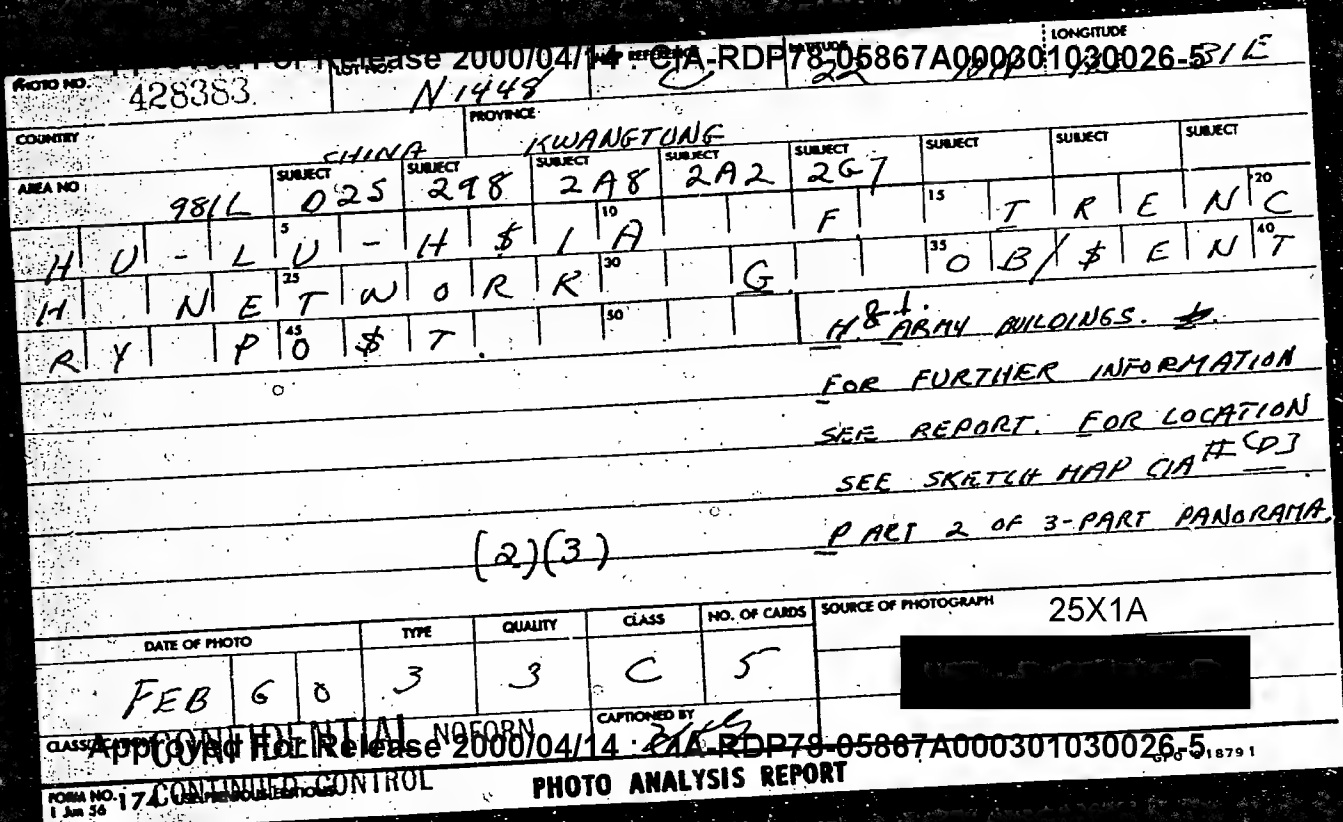 Approved For Release 2000/04/14 : CIA-RDP78-05867A000301030026-5
PHOTO NO. 428383 LOT NO. N1448 C LATITUDE 22 LONGITUDE 31E
COUNTRY CHINA PROVINCE KWANGTUNG
AREA NO 981L SUBJECT 025 SUBJECT 298 SUBJECT 2A8 SUBJECT 2A2 SUBJECT 2G7 SUBJECT SUBJECT SUBJECT
HU-LU-H$IA F TRENC
H NETWORK G OB/$ENT
RY PO$T.
H & I. ARMY BUILDINGS.
FOR FURTHER INFORMATION
SEE REPORT. FOR LOCATION
SEE SKETCH MAP CIA #
PART 2 OF 3-PART PANORAMA.
(2)(3)
DATE OF PHOTO TYPE QUALITY CLASS NO. OF CARDS SOURCE OF PHOTOGRAPH 25X1A
FEB 60 3 3 C 5
CONFIDENTIAL NOFORN CAPTIONED BY
Approved For Release 2000/04/14 : CIA-RDP78-05867A000301030026-5
CONTINUED CONTROL
FORM NO. 174 PHOTO ANALYSIS REPORT
1 Jun 56